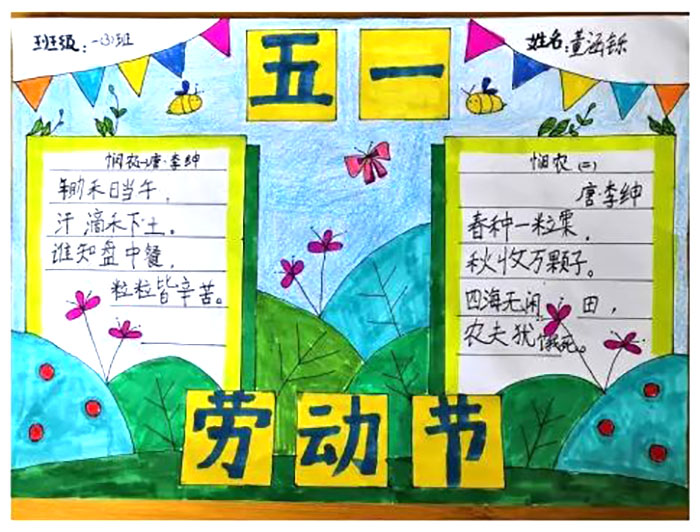 班级:一(3)班
姓名:董涵铄
五一
悯农(一)唐·李绅
锄禾日当午,
汗滴禾下土。
谁知盘中餐,
粒粒皆辛苦。
悯农(二)
唐李绅
春种一粒粟,
秋收万颗子。
四海无闲田,
农夫犹饿死。
劳动节